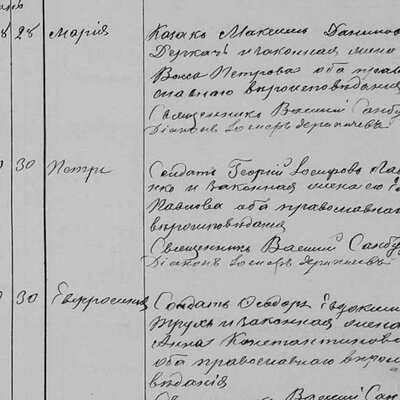 28 28 Марія Казакъ Максимъ Данилов
Деркачъ и законная жена
Васса Петрова оба прав
славнаго вѣроисповѣданія
Священникъ Василій Самбу
Діаконъ Іосифъ
30 Петръ Солдатъ Георгій Іосифовъ
нко и законная жена его
Павлова оба православнаго
вѣроисповѣданія
Священникъ Василій Самбу
Діаконъ Іосифъ
30 Евфросинія Солдатъ Ѳеодоръ Евдоким
и законная жена
Анна Константинова
оба православнаго вѣроис
вѣданія
Василій Сам